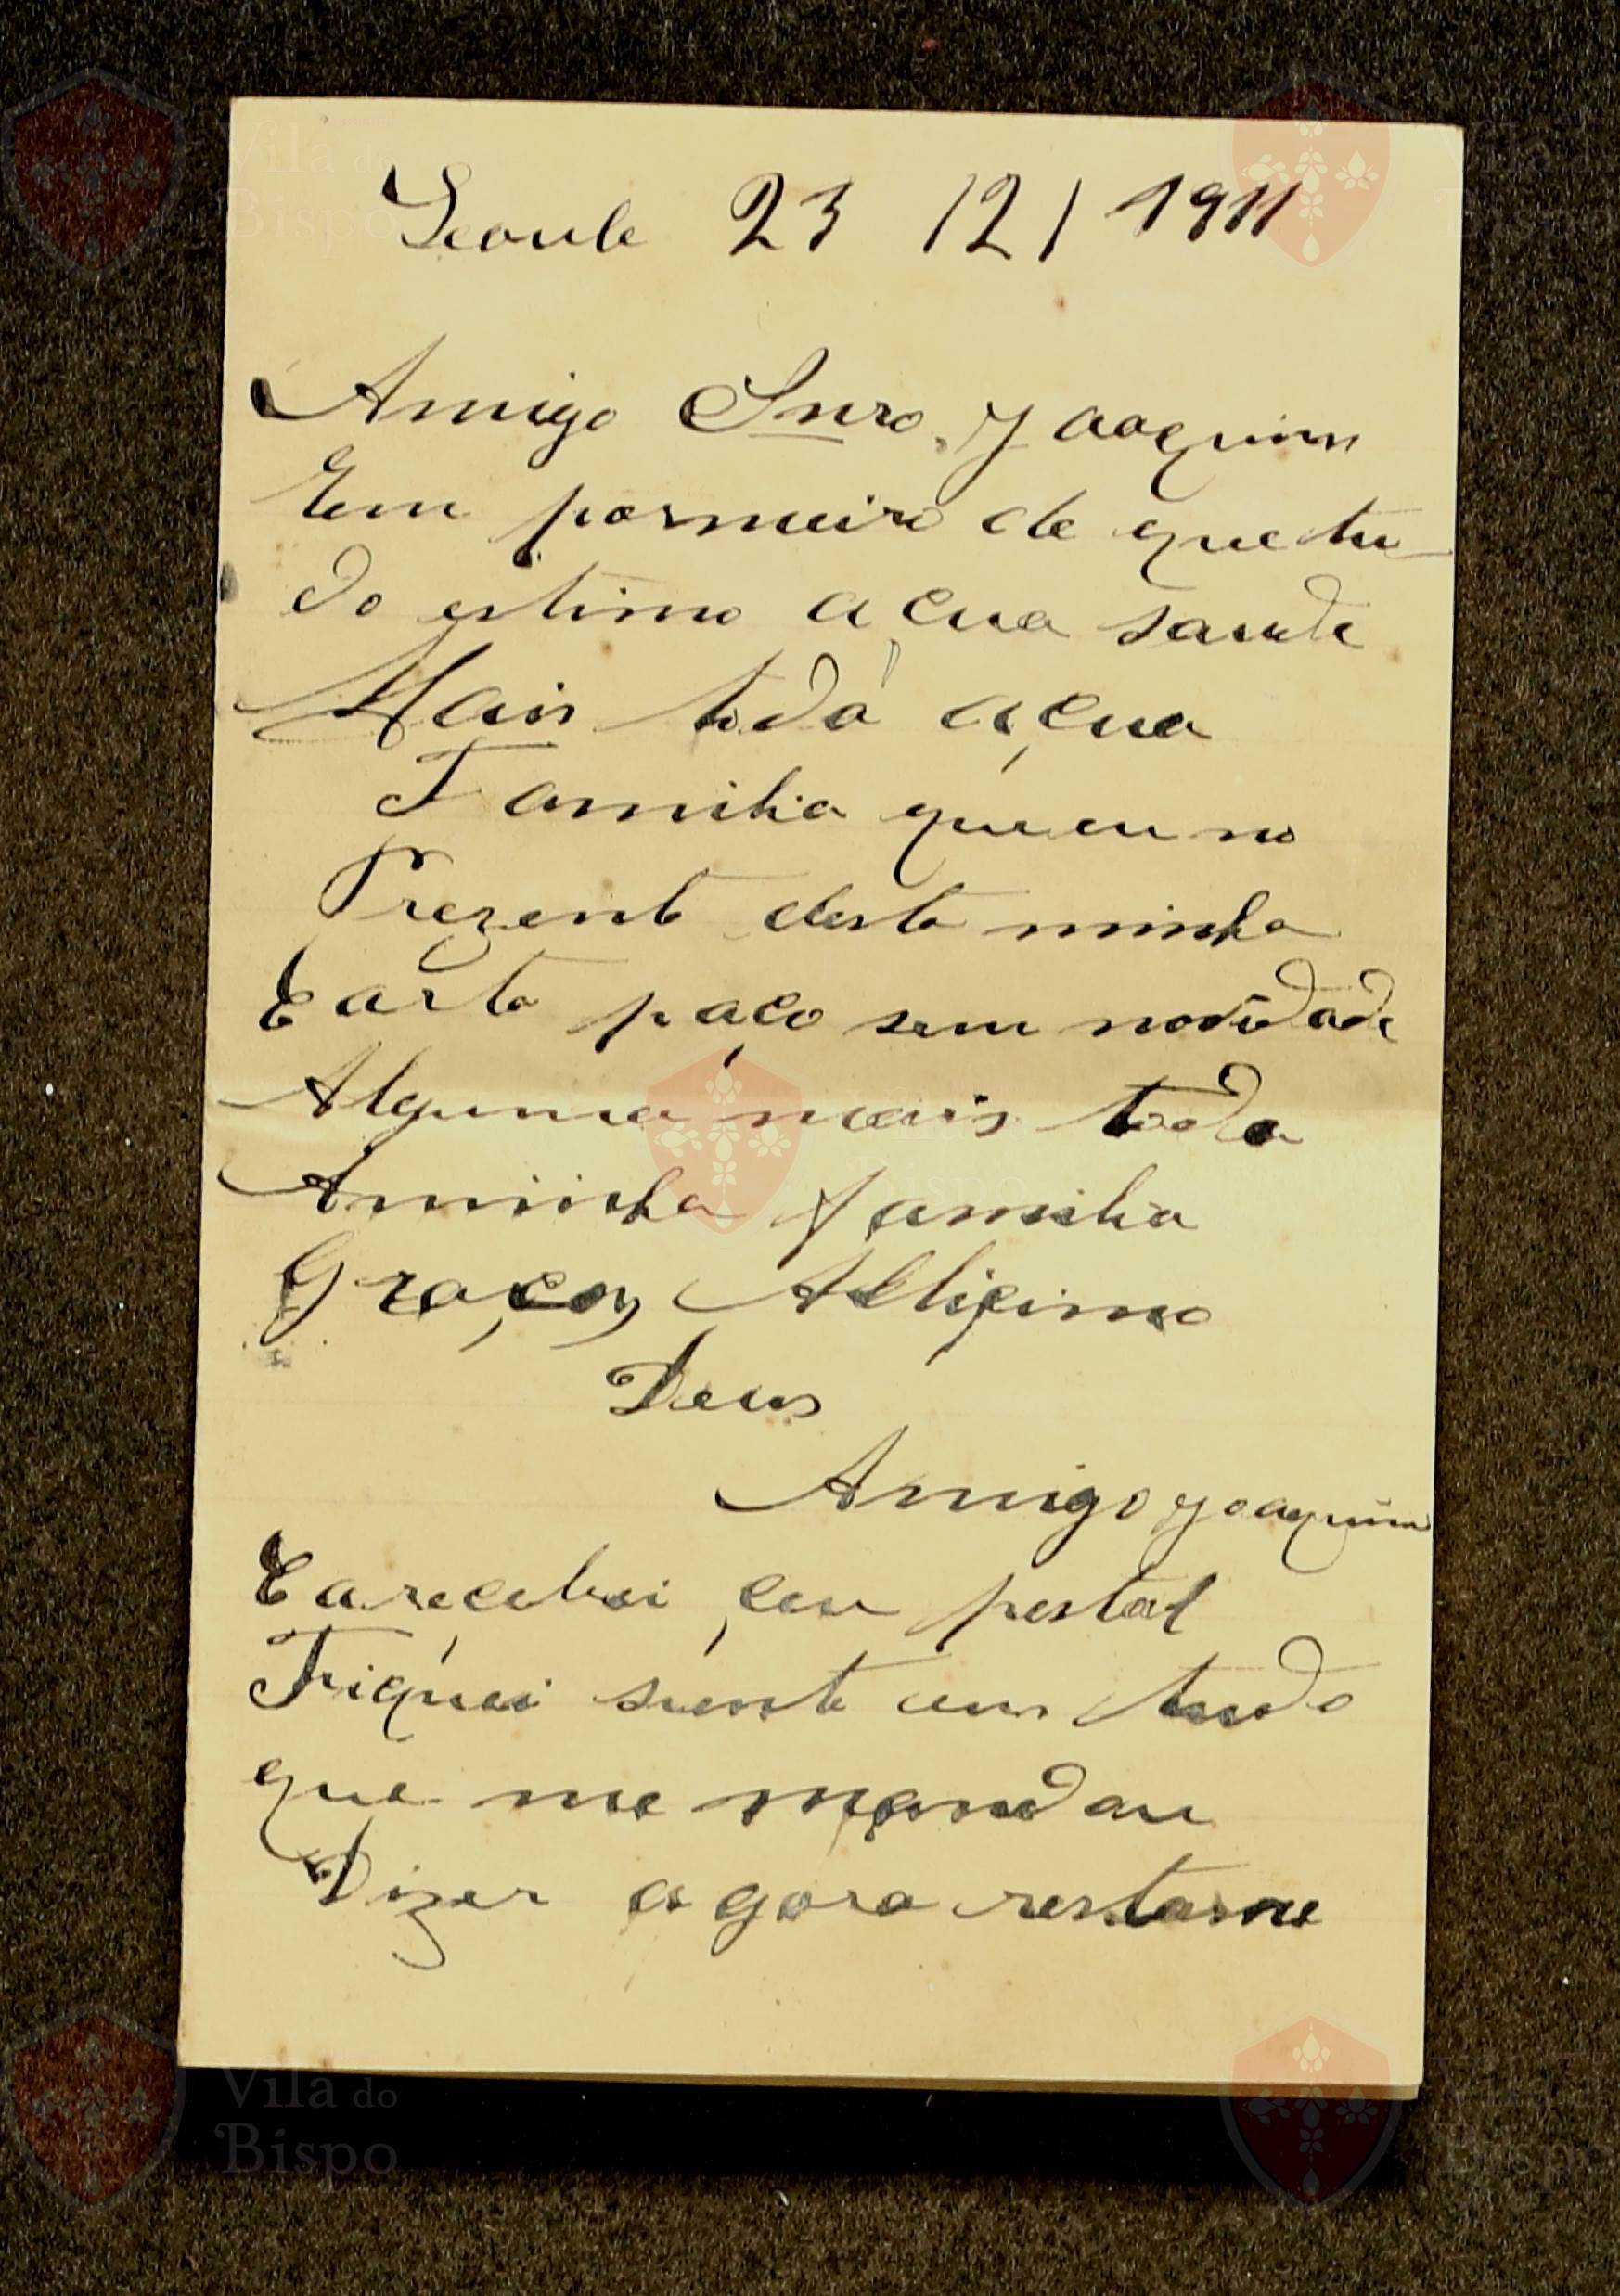 Leoule 23 12 / 1911
Amigo Snro. Joaquim
Em pormeiro de que tu
do estimo a çua saude
Mais toda a çua
Familia que eu no
Prezente desta minha
Carta paço sem novidade
Alguma mais toda
Aminha familia
Graças Altiçimo
Deus
Amigo Joaquim
Ca reçebei çeu postal
Fiquei siente em tudo
que me mandou
Dizer agora restame
Vila do
Bispo